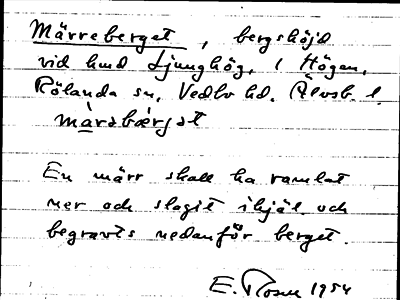 Märreberget, bergshöjd
vid hmd Ljunghög, 1 Högen,
Rölanda sn, Vedbo hd. Älvsb. l.
märabærjet
En märr skall ha ramlat
ner och slagit ihjäl och
begravts nedanför berget.
E. Rosen 1954